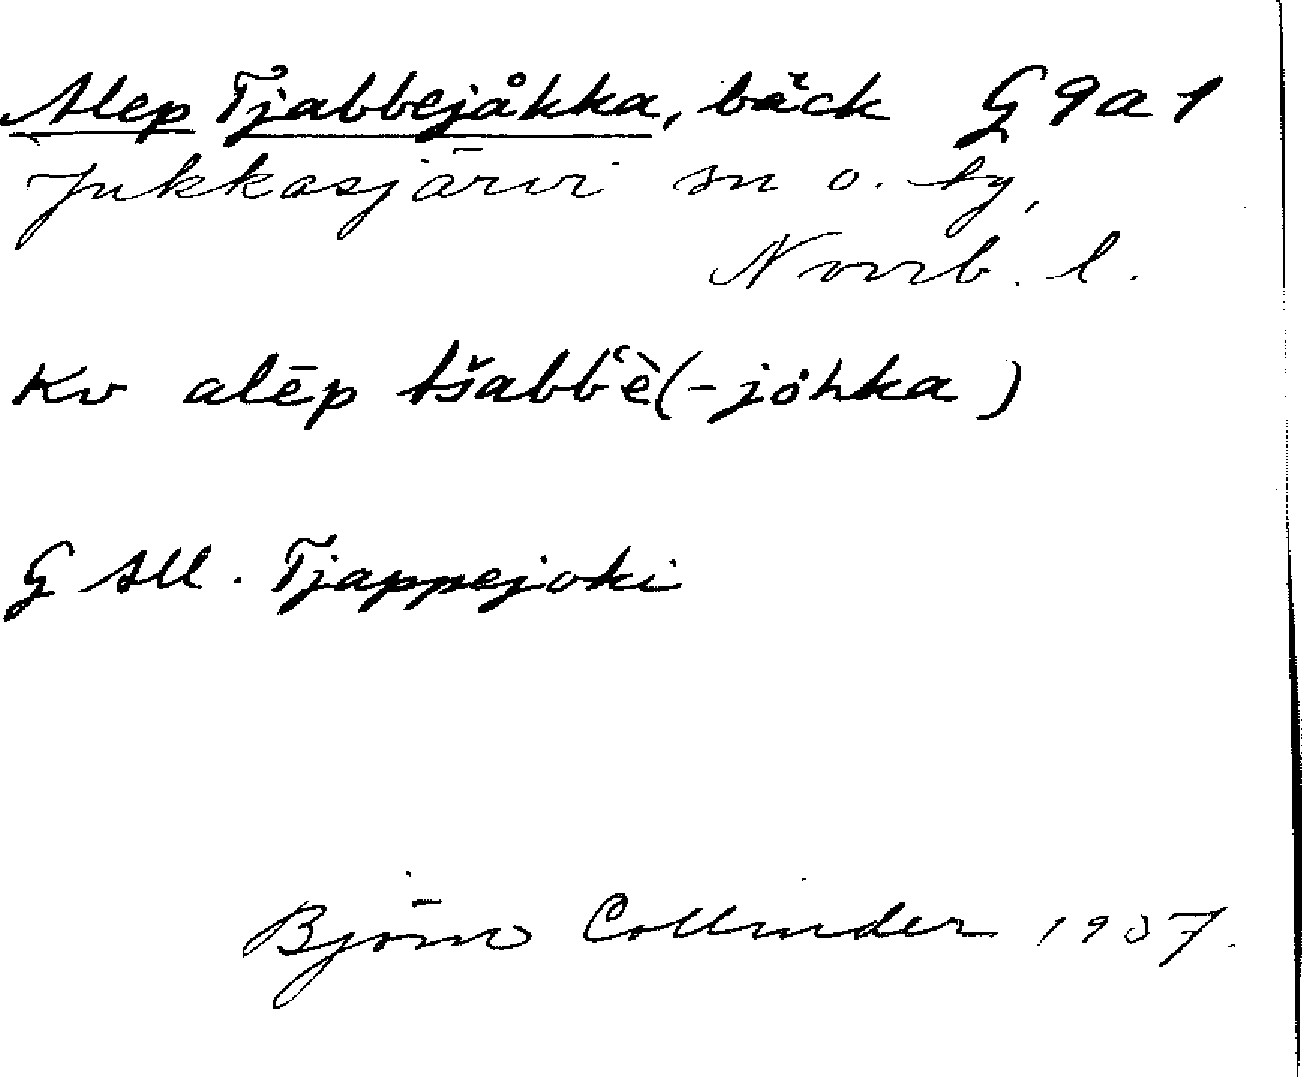 Alep Tjabbejåkka, bäck G 9 a 1
Jukkasjärvi sn o. tg,
Norrb. l.
Kv alēp tšabb‘è(-jȯhka)
G All. Tjappejoki
Björn Collinder 1937.